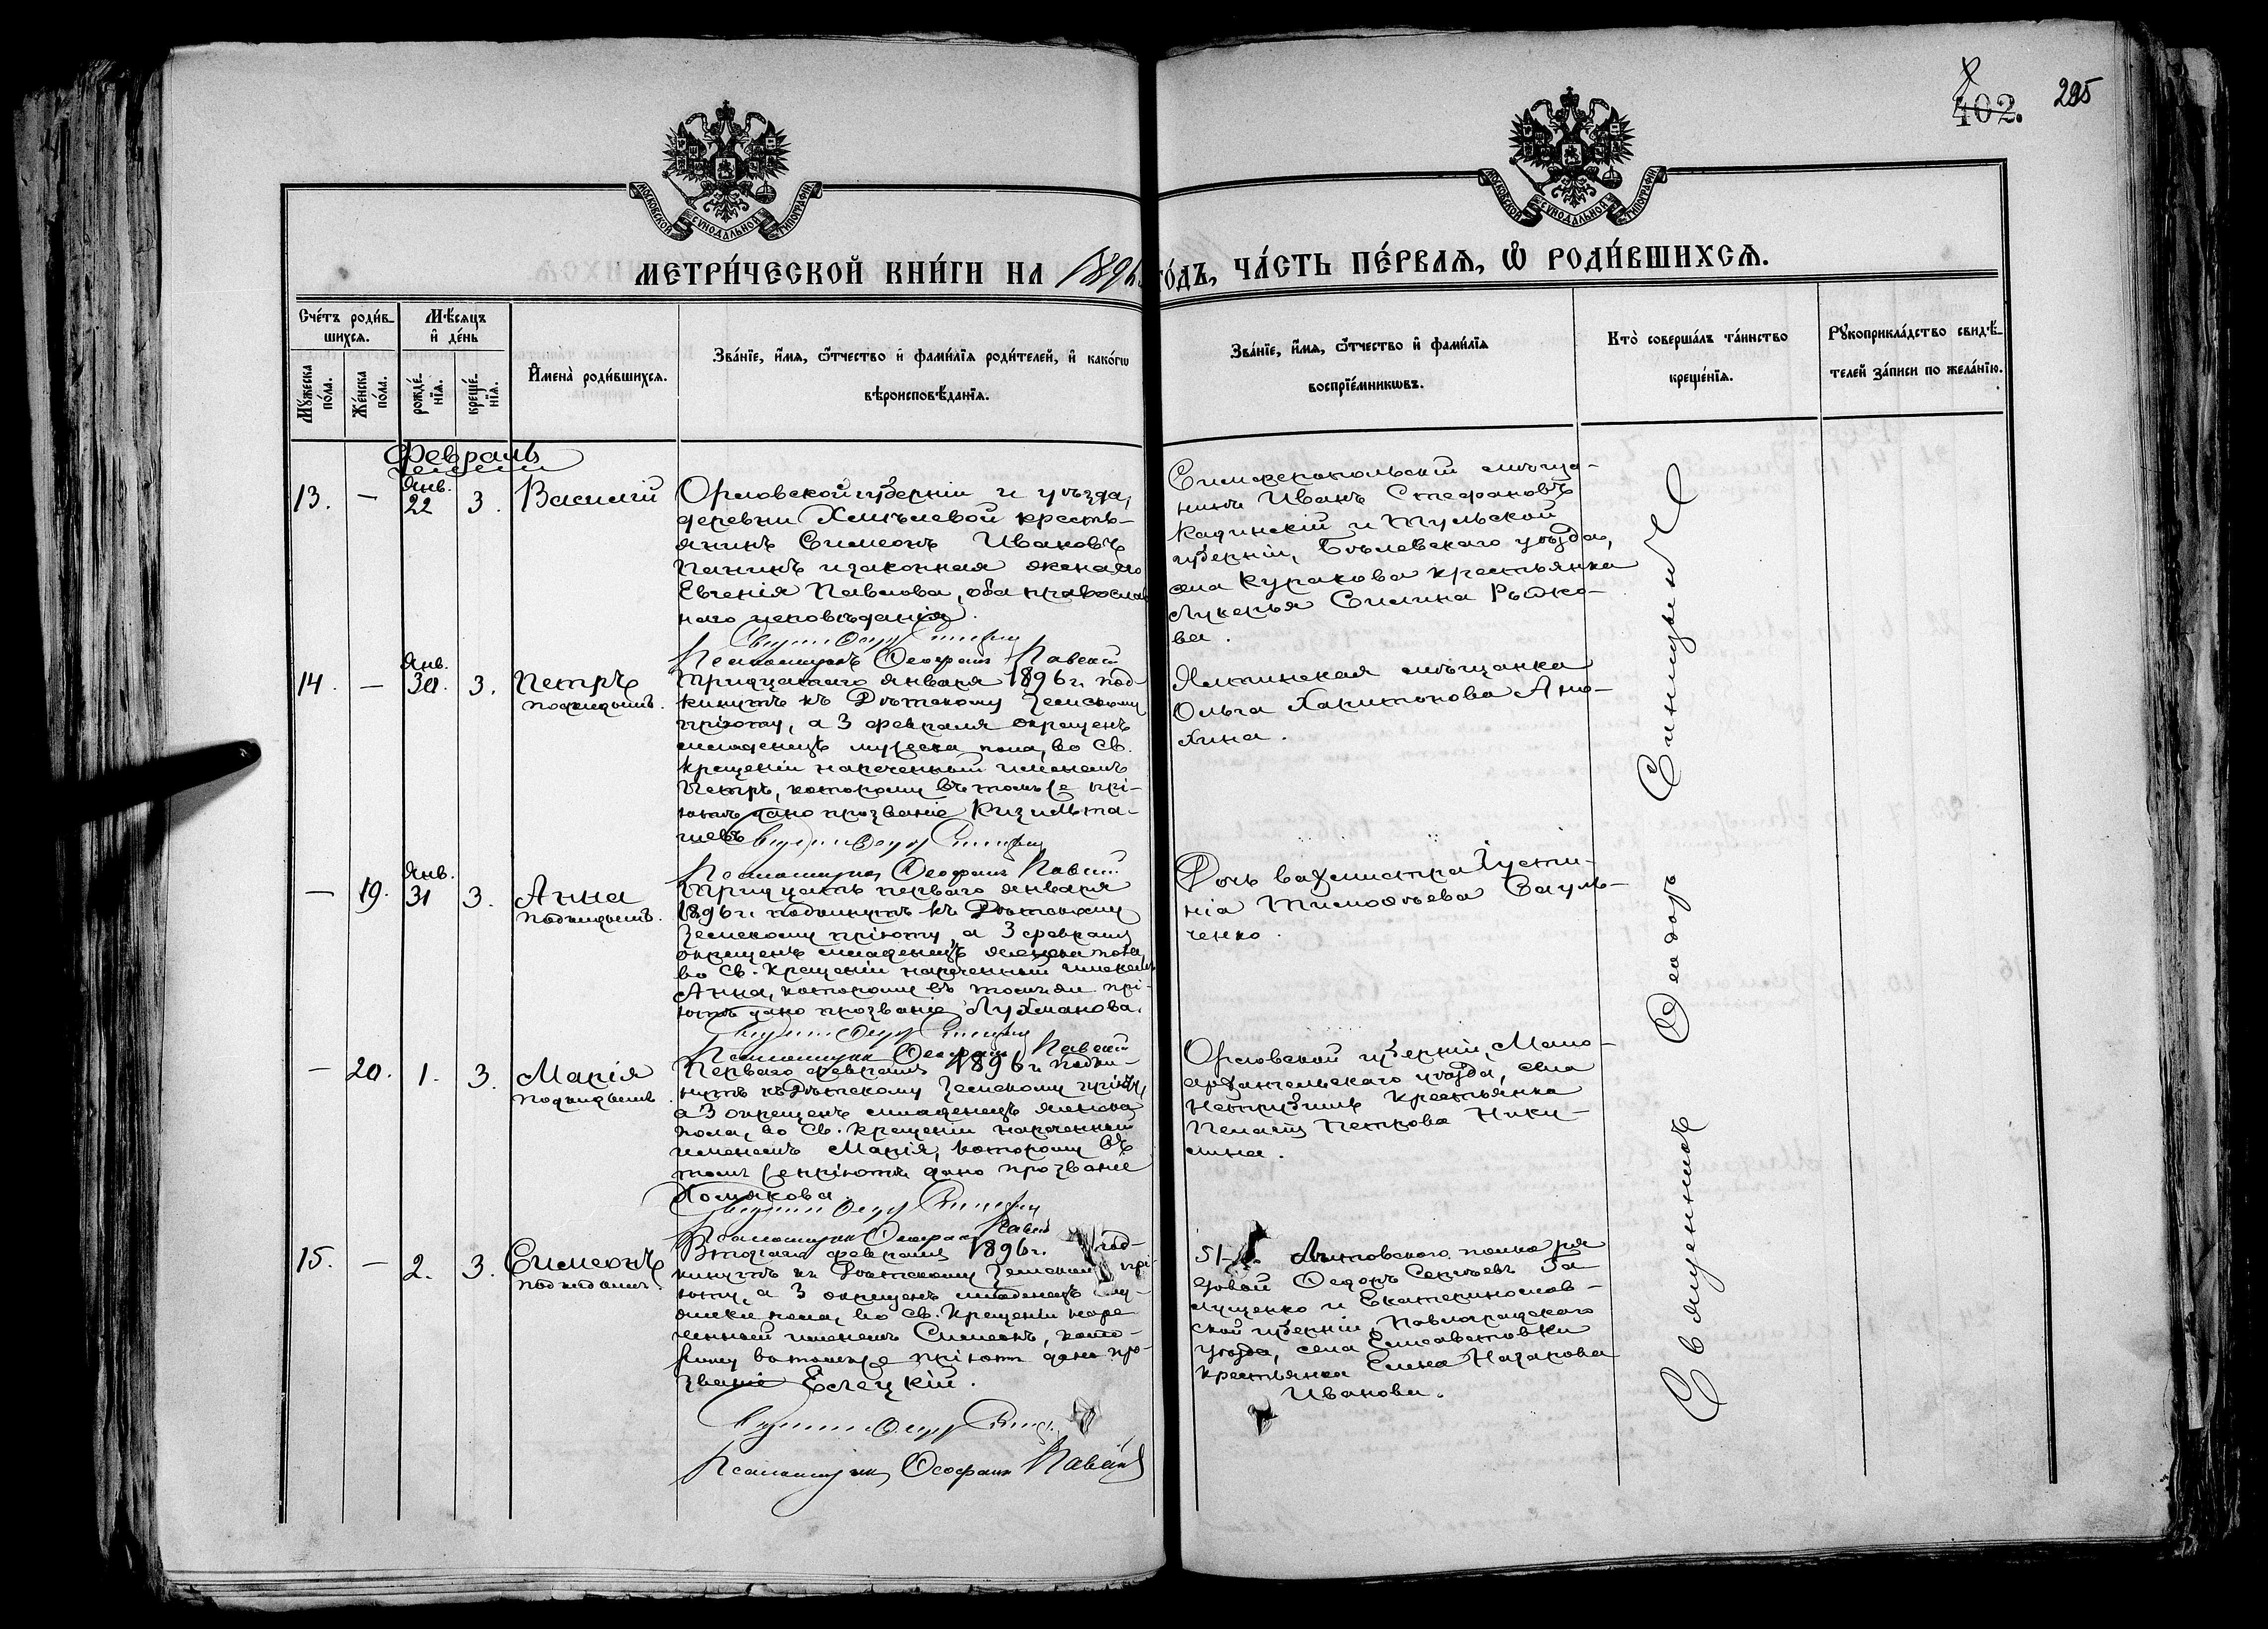 402.
295
МОСКОВСКОЙ СѴНОДАЛЬНОЙ ТИПОГРАФІИ
МОСКОВСКОЙ СѴНОДАЛЬНОЙ ТИПОГРАФІИ
МЕТРИ́ЧЕСКОЙ КНИ́ГИ НА 1896 ГО́ДЪ, ЧА́СТЬ ПЕ́РВАѦ, Ѽ РОДИ́ВШИХСѦ.
Сче́тъ роди́в-
шихся.
Мꙋ́жеска по́ла.
Же́нска по́ла.
Мѣ́сяцъ
и҆ де́нь
рожде́-нїя.
креще́-нїя.
И҆мена̀ роди́вшихся.
Зва́нїе, и҆́мя, ѻ҆́тчество и҆ фами́лїя роди́телей, и҆ како́гѡ
вѣроисповѣ́данїя.
Зва́нїе, и҆́мя, ѻ҆́тчество и҆ фами́лїя
воспрїе́мникѡвъ.
Кто̀ соверша́лъ та́инство
креще́нїя.
Рꙋкоприкла́дство свидѣ́-
телей за́писи по жела́нїю.
Февраль
13.
—
Янв.
22
3.
Василій
Орловской губерніи и уѣзда,
деревни Хмѣлевой кресть-
янинъ Симеонъ Ивановъ
Панинъ и законная жена его
Евгенія Павлова, оба православ
наго исповѣданія.
Псаломщикъ Ѳеофанъ Павскій
Симферопольскій мѣща-
нинъ Иванъ Стефановъ
Кадинскій и Тульской
губерніи, Бѣлевскаго уѣзда,
села Куракова крестьянка
Лукерья Силина Рыжко-
ва.
14.
—
Янв.
30.
3.
Петръ
подкидышъ.
Тридцатаго января 1896 г. под-
кинутъ къ Дѣтскому Земскому
пріюту, а 3 февраля окрещенъ
младенецъ мужеска пола, во Св.
крещеніи нареченный именемъ
Петръ, которому въ томъ же прі-
ютѣ дано прозваніе Кизильта-
шевъ
Псаломщикъ Ѳеофанъ Павскій
Ялтинская мѣщанка
Ольга Харитонова Ано-
хина.
—
19.
Янв.
31
3.
Анна
подкидышъ.
Тридцать перваго января
1896 г. подкинутъ къ Дѣтскому
Земскому пріюту, а 3 февраля
окрещенъ младенецъ женска пола,
во Св. Крещеніи нареченный именемъ
Анна, которому въ томъ же прі-
ютѣ дано прозваніе Лухманова.
Псаломщикъ Ѳеофанъ Павскій
Дочь вахмистра Хусти-
нія Тимоѳѣева Сауль-
ченко.
—
20.
1.
3.
Марія
подкидышъ
Перваго февраля 1896 г. подки-
нутъ къ Дѣтскому Земскому пріюту,
а 3 окрещенъ младенецъ женска
пола, во Св. Крещеніи нареченный
именемъ Марія, которому въ
томъ же пріютѣ дано прозваніе
Хомякова.
Псаломщикъ Ѳеофанъ Павскій
Орловской губерніи, Мало-
архангельскаго уѣзда, села
крестьянка
Пелагія Петрова Ники-
шина.
15.
—
2.
3.
Симеонъ
подкидышъ.
Втораго февраля 1896 г. под-
кинутъ къ Дѣтскому Земскому прі-
юту, а 3 окрещенъ младенецъ му-
жска пола, во Св. Крещеніи наре
ченный именемъ Симеонъ, кото-
рому въ томъ же пріютѣ дано про-
званіе Елецкій.
Псаломщикъ Ѳеофанъ Павскій
51- Литовскаго полка ря
довой Ѳедоръ Сергѣевъ Га
лущенко и Екатеринослав-
ской губерніи, Павлоградскаго
уѣзда, села Елисаветовки
крестьянка Елена Назарова
Иванова.
Священникъ Ѳеодоръ Синицынъ